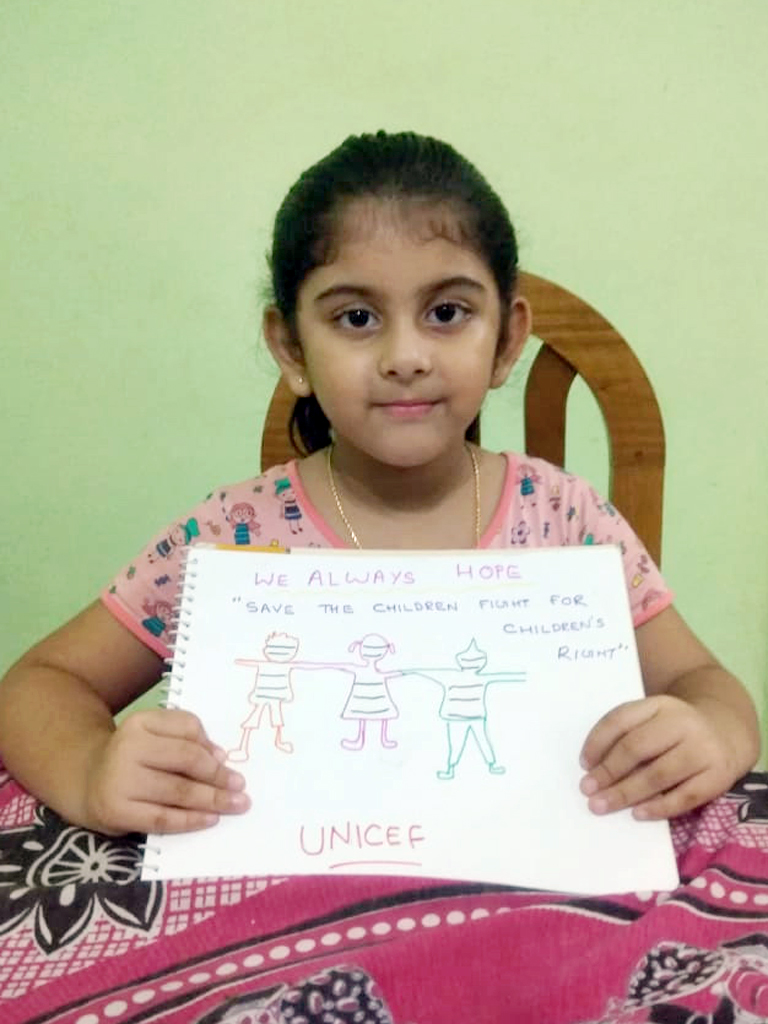 WE ALWAYS HOPE
"SAVE THE CHILDREN FIGHT FOR
CHILDREN'S
RIGHT"
UNICEF